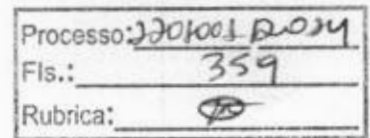 Processo: 2201001/2024
Fls.: 359
Rubrica: